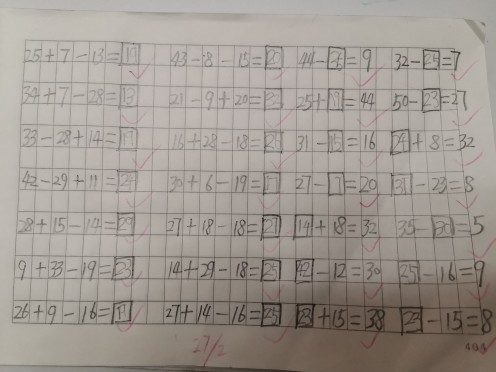 25+7-13=19 43-8-15=20 44-35=9 32-25=7
34+7-28=13 21-9+20=32 25+19=44 50-23=27
33-28+14=19 16+28-18=26 31-15=16 24+8=32
42-29+11=24 30+6-19=17 27-7=20 31-23=8
28+15-14=29 27+18-18=27 14+18=32 35-30=5
9+33-19=23 14+29-18=25 42-12=30 25-16=9
26+9-16=19 27+14-16=25 23+15=38 23-15=8
27/2